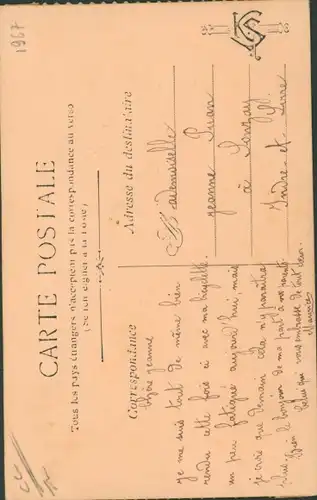 1967
CARTE POSTALE
Tous les pays étrangers n'acceptent pas la correspondance au verso
(se renseigner à la Poste)
Correspondance
Adresse du destinataire
Chère Jeanne
je me suis tout de même bien
rendu cette fois ci avec ma bicyclette.
un peu fatigué aujourd'hui mais
je crois que demain cela n'y paraîtra
plus. bien le bonjour de ma part à vos parents
Celui qui vous embrasse de tout cœur.
Maurice
Mademoiselle
Jeanne
à Sonzay
Indre-et-Loire